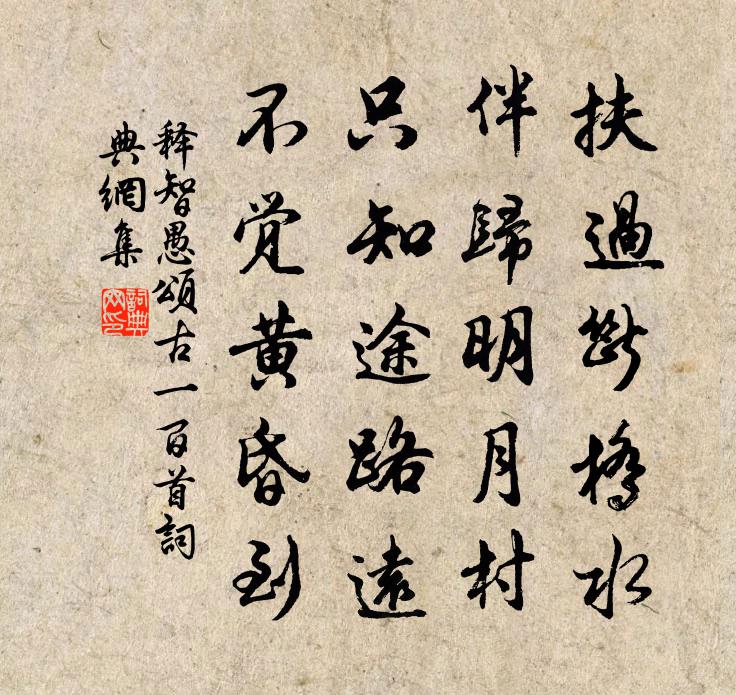 扶過断橋水
伴歸明月村
只知途路遠
不觉黄昏到
释智愚頌古一百首詞
典網集
詞典
网印